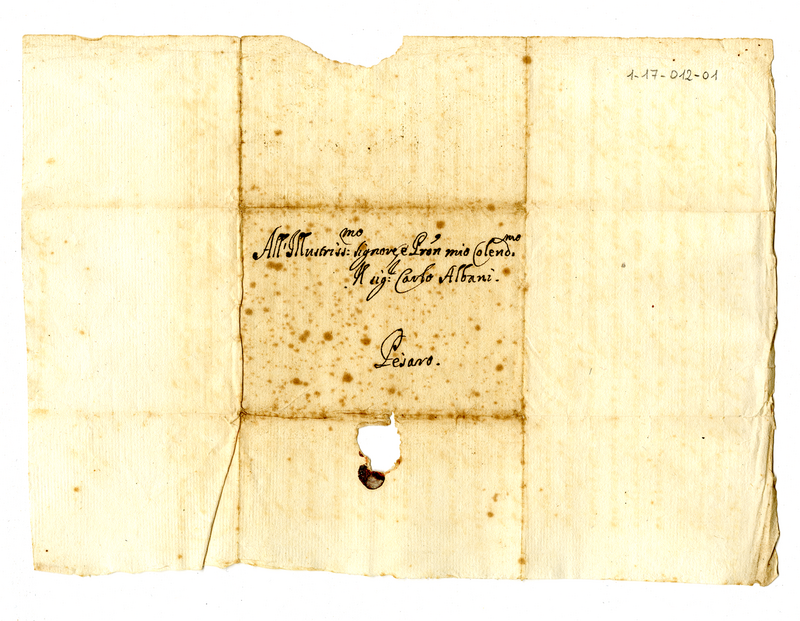 1-17-012-01
All'Illustriss:mo signore, e Pròn mio Colend.mo
Il sig:r Carlo Albani.
Pesaro.